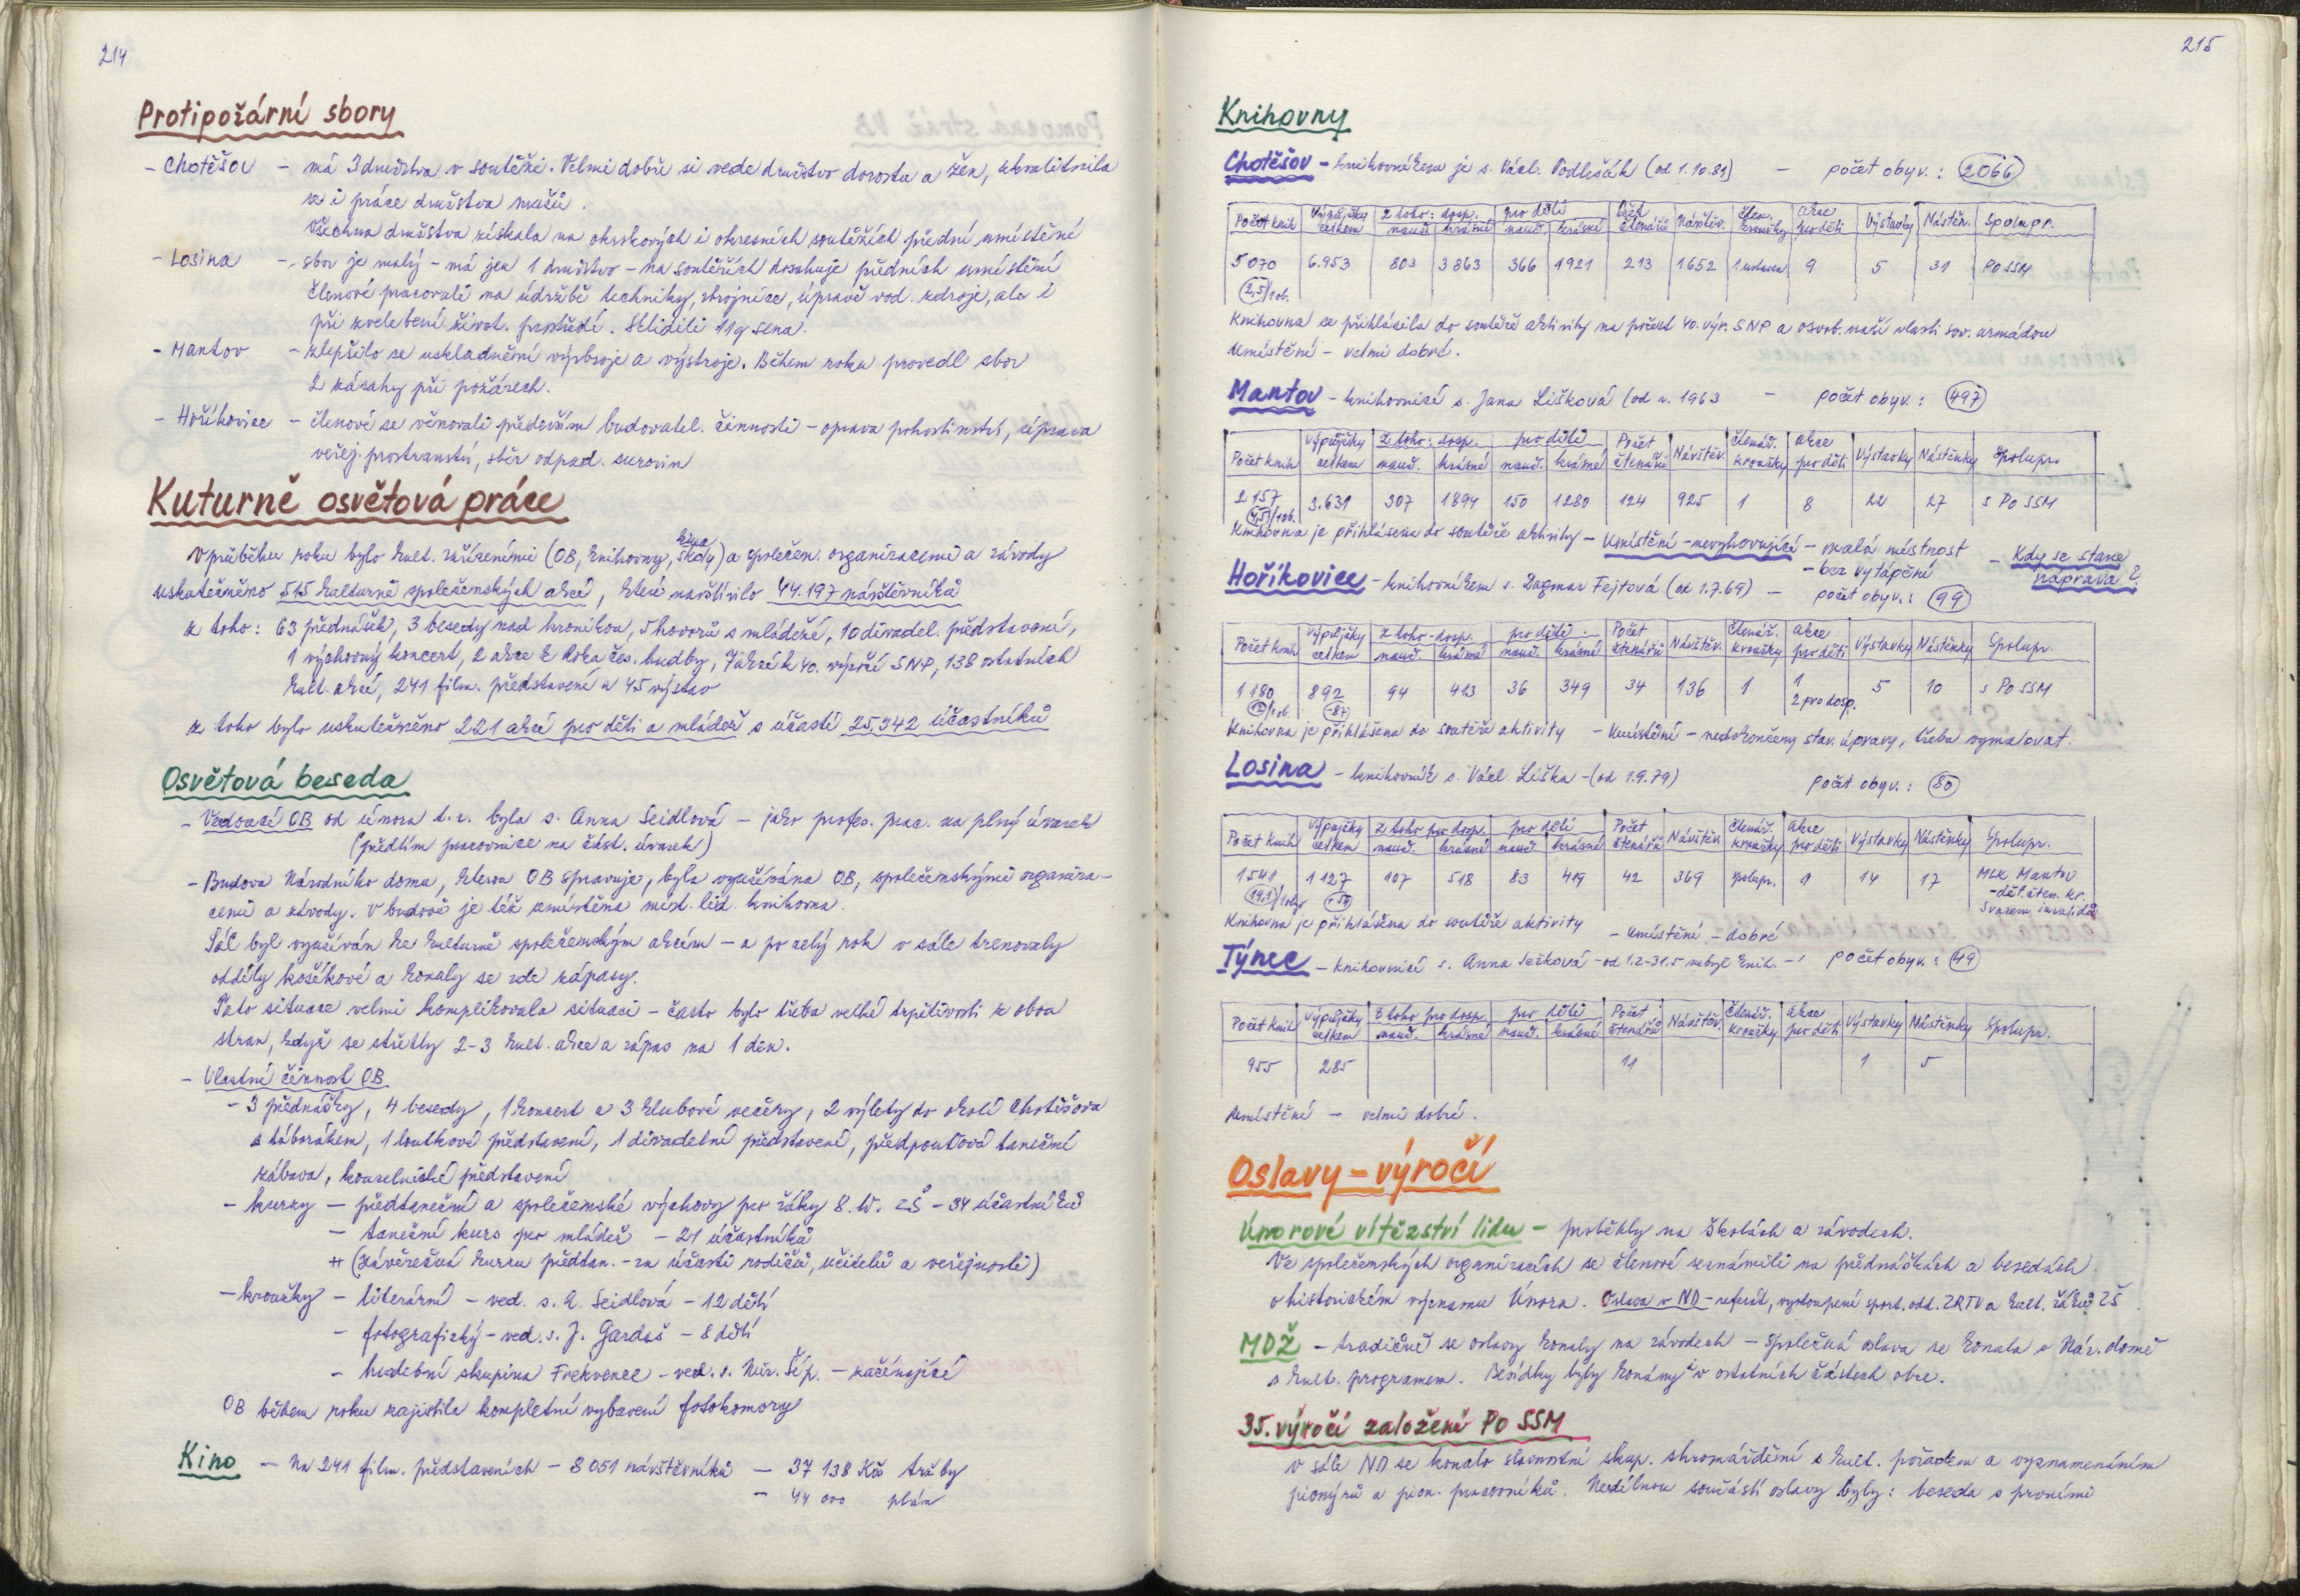 214
Protipožární sbory
- Chotěšov - má 3 družstva v soutěži. Velmi dobře si vede družstvo dorostu a žen, zkvalitnila
se i práce družstva mužů.
Všechna družstva získala na okrskových i okresních soutěžích přední umístění
- Losina - sbor je malý - má jen 1 družstvo - na soutěžích dosahuje předních umístění
Členové pracovali na údržbě techniky, zbrojnice, úpravě vod. zdroje, ale i
při zvelebení život. prostředí. Sklidili 11q sena.
- Mantov - zlepšilo se uskladnění výzbroje a výstroje. Během roku provedl sbor
2 zásahy při požárech.
- Hoříkovice - členové se věnovali především budovatel. činnosti - oprava pohostinství, úprava
veřej. prostranství, sběr odpad. surovin
Kuturně osvětová práce
V průběhu roku bylo kult. zařízeními (OB, knihovny, kina školy) a společen. organizacemi a závody
uskutečněno 515 kulturně společenských akcí, které navštívilo 44.197 návštěvníků
z toho: 63 přednášek, 3 besedy nad kronikou, 5 hovorů s mládeží, 10 divadel. představení,
1 výchovný koncert, 2 akce k Roku čes. hudby, 7 akcí k 40. výročí SNP, 138 ostatních
kult. akcí, 241 film. představení a 45 výstav
z toho bylo uskutečněno 221 akcí pro děti a mládež s účastí 25.342 účastníků
Osvětová beseda
- Vedoucí OB od února t.r. byla s. Anna Seidlová - jako profes. prac. na plný úvazek
(předtím pracovnice na část. úvazek)
- Budova Národního domu, kterou OB spravuje, byla využívána OB, společenskými organiza-
cemi a závody. V budově je též umístěna míst. lid. knihovna.
Sál byl využíván ke kulturně společenským akcím - a po celý rok v sále trenovaly
oddíly košíkové a konaly se zde zápasy.
Tato situace velmi komplikovala situaci - často bylo třeba velké trpělivosti z obou
stran, když se střetly 2-3 kult. akce a zápas na 1 den.
- Vlastní činnost OB
- 3 přednášky, 4 besedy, 1 koncert a 3 klubové večery, 2 výlety do okolí Chotěšova
s táborákem, 1 loutkové představení, 1 divadelní představení, předpouťová taneční
zábava, kouzelnické představení
- kurzy - předtaneční a společenské výchovy pro žáky 8. tř. ZŠ - 34 účastníků
- taneční kurs pro mládež - 21 účastníků
+ (závěrečná kurzu předtan. - za účasti rodičů, učitelů a veřejnosti)
- kroužky - literární - ved. s. A. Seidlová - 12 dětí
- fotografický - ved. s. J. Gardoš - 8 dětí
- hudební skupina Frekvence - ved. s. Mir. Šíp. - začínající
OB během roku zajistila kompletní vybavení fotokomory
Kino - Na 241 film. představeních - 8051 návštěvníků - 37 138 Kčs tržby
- 44 000 plán
215
Knihovny
Chotěšov - knihovníkem je s. Václ. Podlešák (od 1.10.81) - počet obyv.: 2066
Počet knih Výpůjčky celkem z toho: dosp. nauč. krásné pro děti nauč. krásné Počet čtenářů Návštěv. Čten. kroužky Akce pro děti Výstavky Nástěn. Spolupr.
5070 6.953 803 3863 366 1921 213 1652 1 ustaven 9 5 31 PO SSM
2,5/1 ob.
Knihovna se přihlásila do soutěže aktivity na počest 40. výr. SNP a osvob. naší vlasti sov. armádou
Umístění - velmi dobré.
Mantov - knihovnicí s. Jana Lišková (od r. 1963 - počet obyv.: 497
Počet knih Výpůjčky celkem z toho: dosp. nauč. krásné pro děti nauč. krásné Počet čtenářů Návštěv. Čtenář. kroužky Akce pro děti Výstavky Nástěnky Spolupr.
2.157 3.631 307 1894 150 1280 124 925 1 8 22 27 s PO SSM
4,5/1 ob.
Knihovna je přihlášena do soutěže aktivity - Umístění - nevyhovující - malá místnost - Kdy se stane
- bez vytápění náprava?
Hoříkovice - knihovníkem s. Dagmar Fejtová (od 1.7.69) - počet obyv.: 99
Počet knih Výpůjčky celkem z toho - dosp. nauč. krásné pro děti - nauč. krásné Počet čtenářů Návštěv. Čtenář. kroužky Akce pro děti Výstavky Nástěnky Spolupr.
1180 892 94 413 36 349 34 136 1 1 5 10 s PO SSM
12/1 ob. -87 2 pro dosp.
Knihovna je přihlášena do soutěže aktivity - Umístění - nedokončeny stav. úpravy, třeba vymalovat.
Losina - knihovník s. Václ. Liška - (od 1.9.79) počet obyv.: 80
Počet knih Výpůjčky celkem z toho pro dosp. nauč. krásné pro děti nauč. krásné Počet čtenářů Návštěv. Čtenář. kroužky Akce pro děti Výstavky Nástěnky Spolupr.
1541 1127 107 518 83 419 42 369 spolupr. 1 14 17 MLK Mantov
19,2/1 oby - dět. čten. kr.
Svazem invalidů
Knihovna je přihlášena do soutěže aktivity - Umístění - dobré
Týnec - knihovnicí s. Anna Ježková - od 1.2-31.5 nebyl knih. - počet obyv.: 49
Počet knih Výpůjčky celkem z toho pro dosp. nauč. krásné pro děti nauč. krásné Počet čtenářů Návštěv. Čtenář. kroužky Akce pro děti Výstavky Nástěnky Spolupr.
955 285 11 1 5
Umístění - velmi dobré.
Oslavy - výročí
Únorové vítězství lidu - proběhly na školách a závodech.
Ve společenských organizacích se členové seznámili na přednáškách a besedách
o historickém významu Února. Oslava v ND - referát, vystoupení sport. odd. ZRTV a kult. žáků ZŠ
MDŽ - tradičně se oslavy konaly na závodech - společná oslava se konala v Nár. domě
s kult. programem. Besídky byly konány i v ostatních částech obce.
35. výročí založení PO SSM
V sále ND se konalo slavnostní skup. shromáždění s kult. pořadem a vyznamenáním
pionýrů a pion. pracovníků. Nedílnou součástí oslavy byly: beseda s prvními